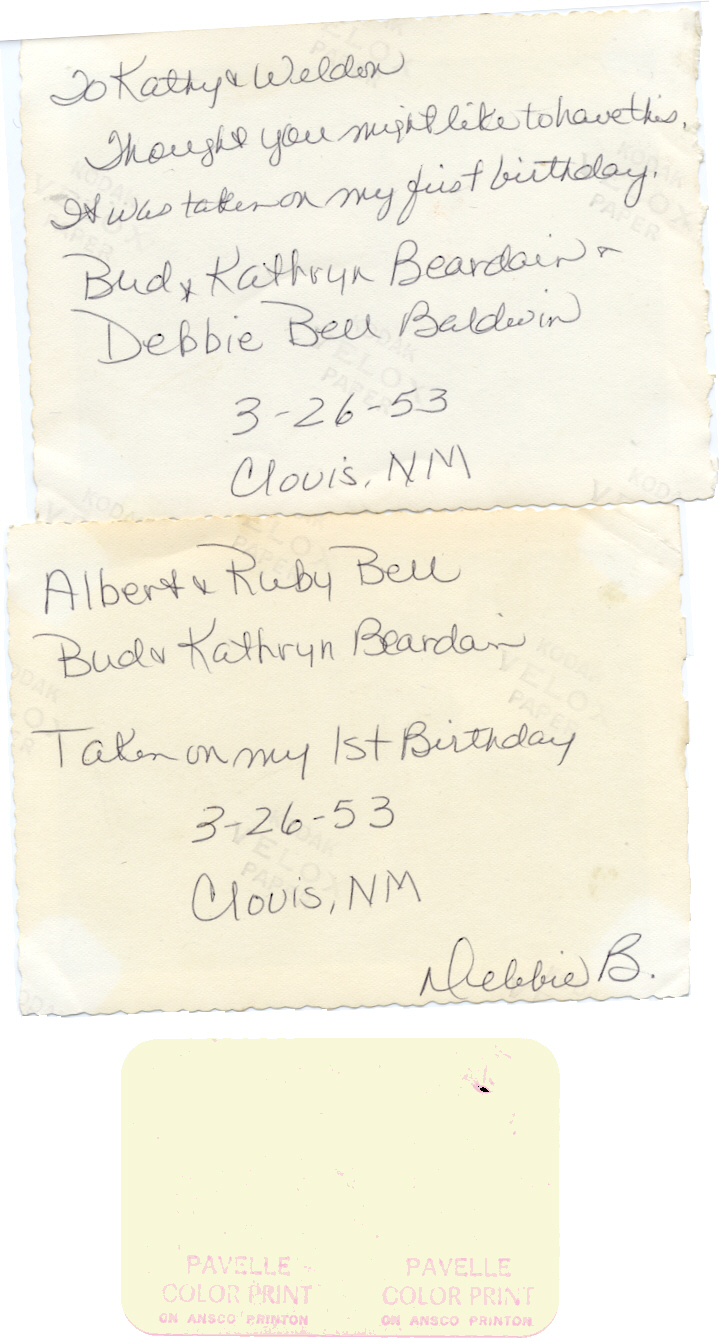 To Kathy & Weldon
Thought you might like to have this.
It was taken on my first birthday.
Bud & Kathryn Beardain &
Debbie Bell Baldwin
3-26-53
Clovis, NM
KODAK
VELOX
PAPER
Albert & Ruby Bell
Bud & Kathryn Beardain
Taken on my 1st Birthday
3-26-53
Clovis, NM
Debbie B.
KODAK
VELOX
PAPER
PAVELLE PAVELLE
COLOR PRINT COLOR PRINT
ON ANSCO PRINTON ON ANSCO PRINTON